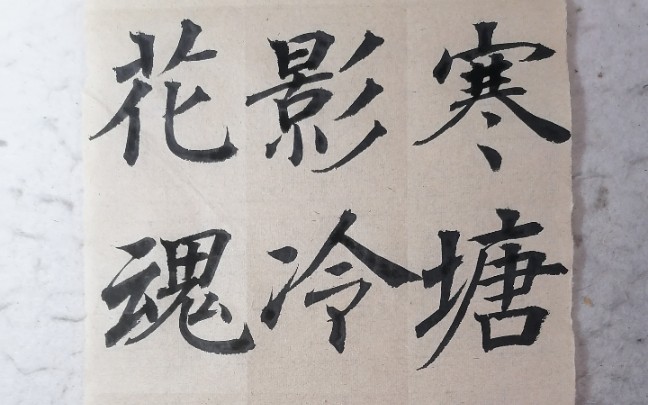 寒塘
影冷
花魂